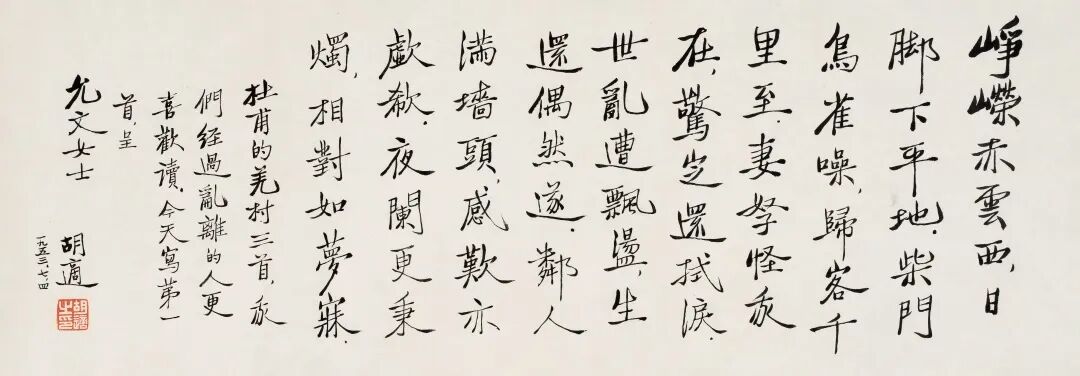 崢嶸赤雲西,日
脚下平地,柴門
鳥雀噪,歸客千
里至,妻孥怪我
在,驚定還拭淚.
世亂遭飄盪,生
還偶然遂,鄰人
滿墻頭,感歎亦
歔欷.夜闌更秉
燭,相對如夢寐.
杜甫的羌村三首,我
們經過亂離的人更
喜歡讀.今天寫第一
首,呈
允文女士
胡適
一九五三.七.四
胡適之印